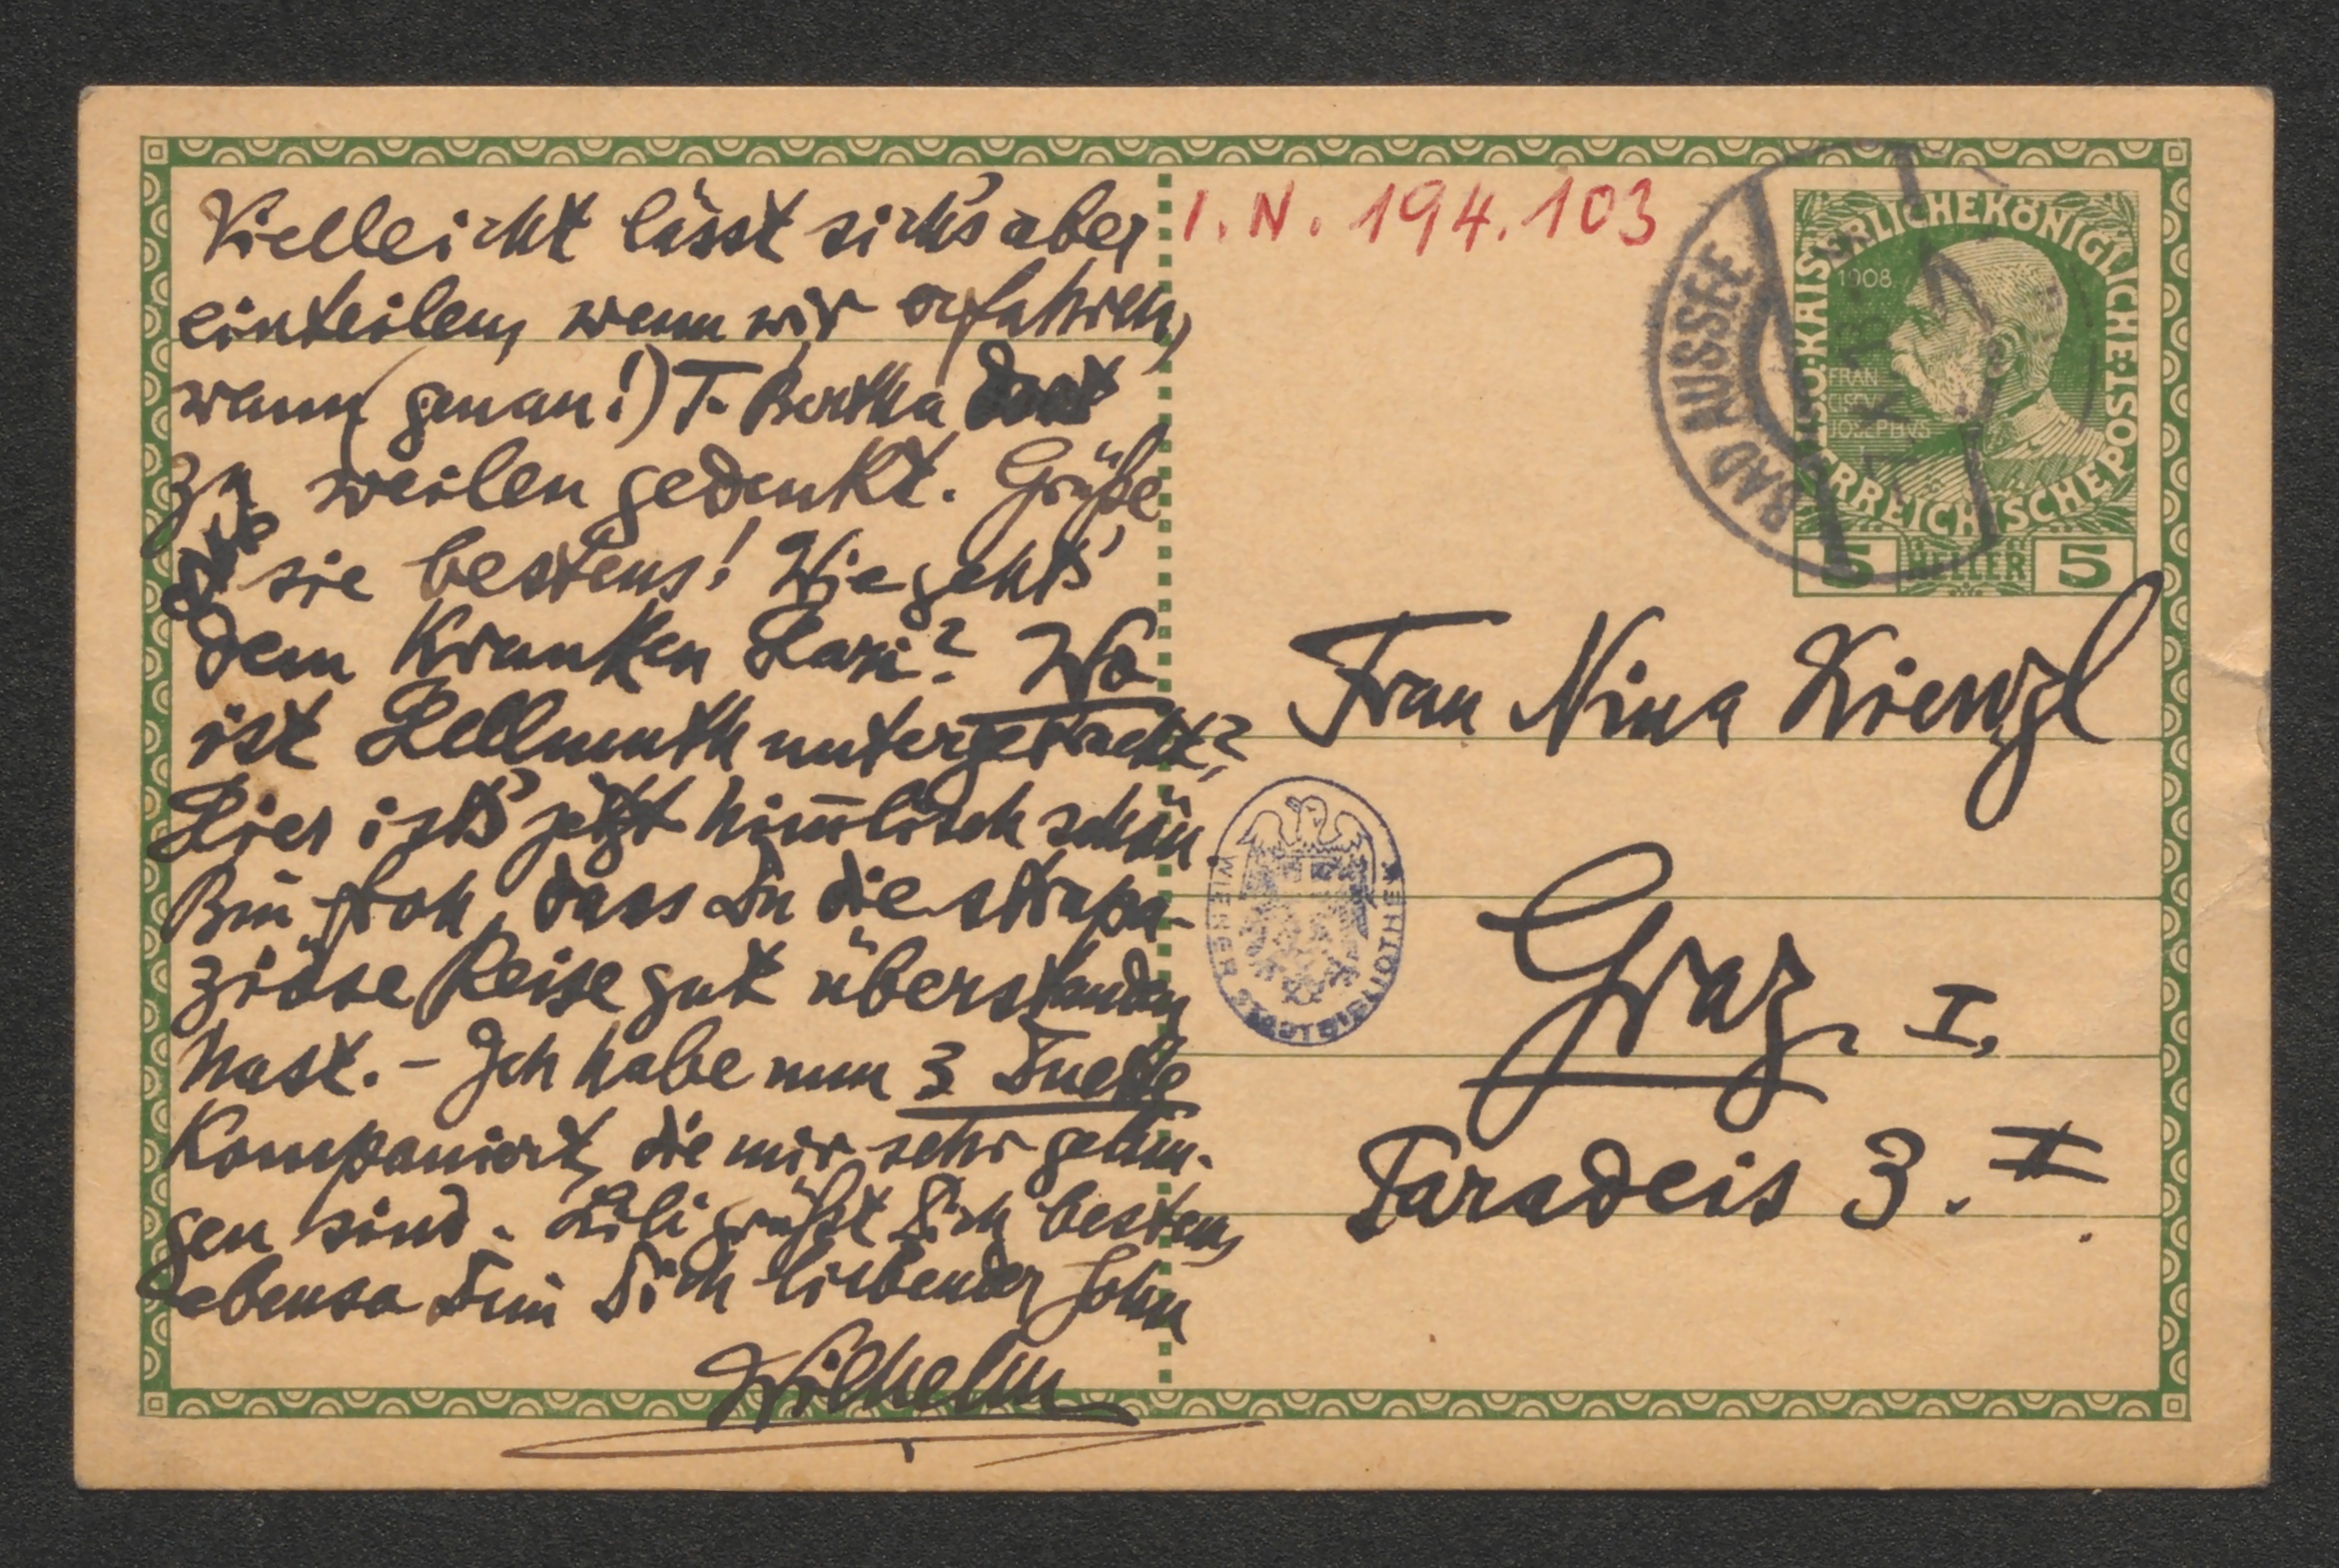 Vielleicht lässt sich's aber
einteilen, wenn wir erfahren,
wann genau!) T. Bertha dort
zu weilen gedenkt. Grüße
sie bestens! Wie geht's
dem Kranken Hasi? Wo
ist Hellmuth untergebracht?
Hier ist's jetzt him̄lisch schön.
Bin froh, dass Du die strapa-
ziöse Reise gut überstanden
hast. – Ich habe nun 3 Duette
komponiert, die mir sehr gelun-
gen sind. Lili grüßt Dich bestens,
ebenso Dein Dich liebender Sohn
Wilhelm
I. N. 194.103
BAD AUSSEE
KAISERLICHE KÖNIGLICHE ÖSTERREICHISCHE POST
1908
FRAN
CISCVS
JOSEPHVS
5 HELLER 5
Frau Nina Kienzl
WIENER BIBLIOTHEK
Graz I.
Paradeis 3. II.